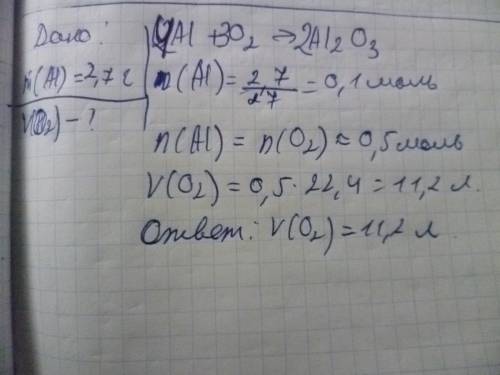 Дано:
m(Al)=2,7 г
V(O₂)-?
4Al + 3O₂ → 2Al₂O₃
n(Al)= 2,7/27 = 0,1 моль
n(Al) = n(O₂) ≈ 0,5 моль
V(O₂) = 0,5 · 22,4 = 11,2 л.
Ответ: V(O₂) = 11,2 л.